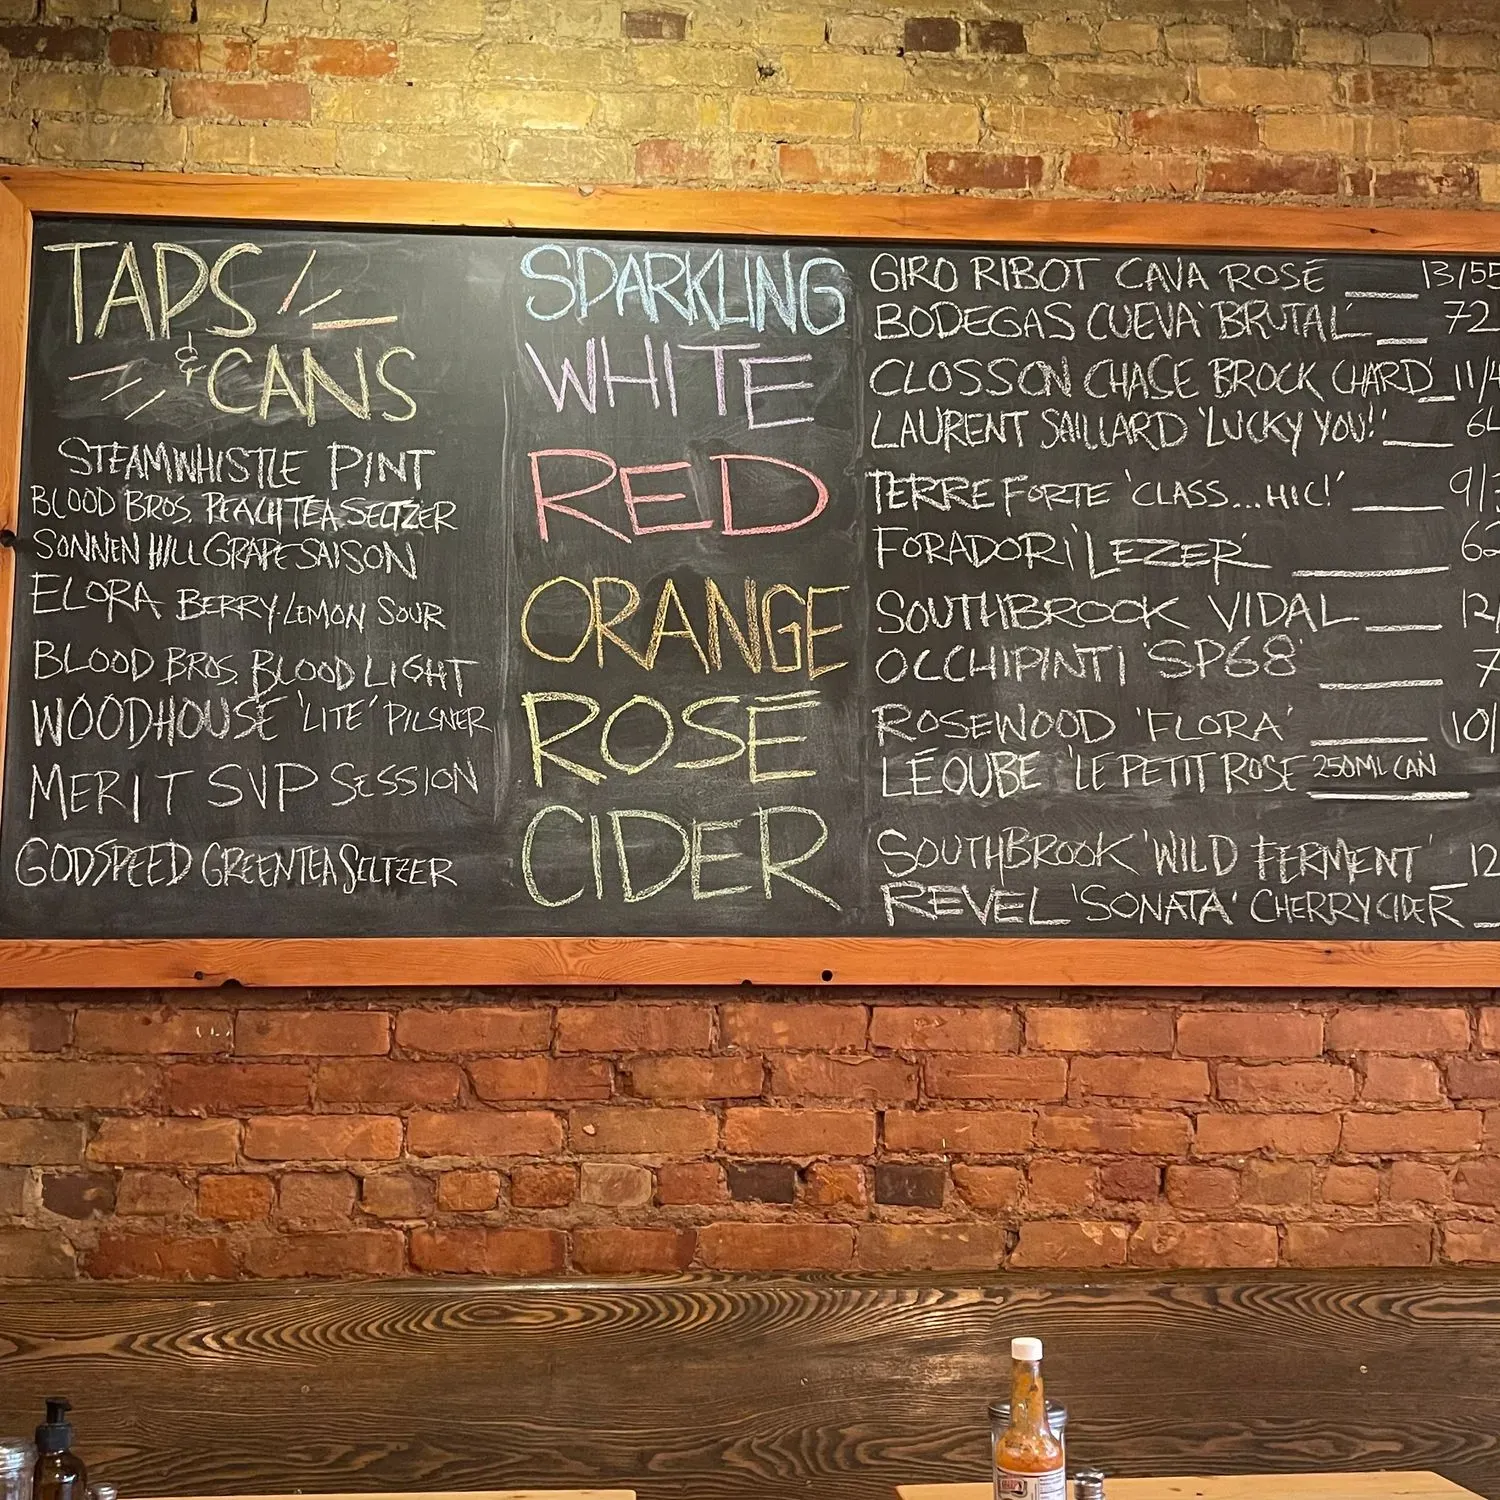 TAPS
& CANS
STEAMWHISTLE PINT
BLOOD BROS. PEACH TEA SELTZER
SONNEN HILL GRAPE SAISON
ELORA BERRY-LEMON SOUR
BLOOD BROS. BLOOD LIGHT
WOODHOUSE 'LITE' PILSNER
MERIT SVP SESSION
GODSPEED GREEN TEA SELTZER
SPARKLING
GIRO RIBOT CAVA ROSÉ 13/55
BODEGAS CUEVA 'BRUTAL' 72
WHITE
CLOSSON CHASE BROCK CHARD 11/4
LAURENT SAILLARD 'LUCKY YOU!!' 64
RED
TERRE FORTE 'CLASS...HIC!' 9/
FORADORI 'LEZER'
ORANGE
SOUTHBROOK VIDAL 12/
OCCHIPINTI 'SP68' 7
ROSÉ
ROSEWOOD 'FLORA' 10/
LÉOUBE 'LE PETIT ROSE 250ML CAN
CIDER
SOUTHBROOK 'WILD FERMENT' 12
REVEL 'SONATA' CHERRY CIDER